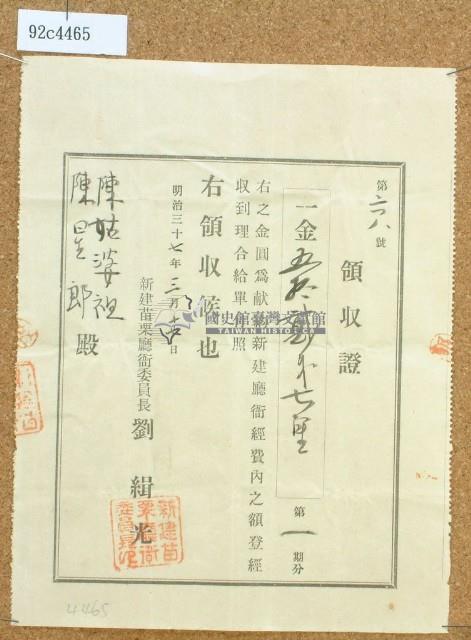 92c4465
第一六八號
領收證
一金五拾
第一期分
右之金圓爲献納新建廳衙經費內之額登經
收到理合給單執照
右領收候也
明治三十七年三月十六日
新建苗栗廳衙委員長 劉緝光
陳姑婆祖
陳星郎 殿
國史館臺灣文獻館
TAIWAN HISTORICA
新建苗
栗廳衙
委員長印
4465